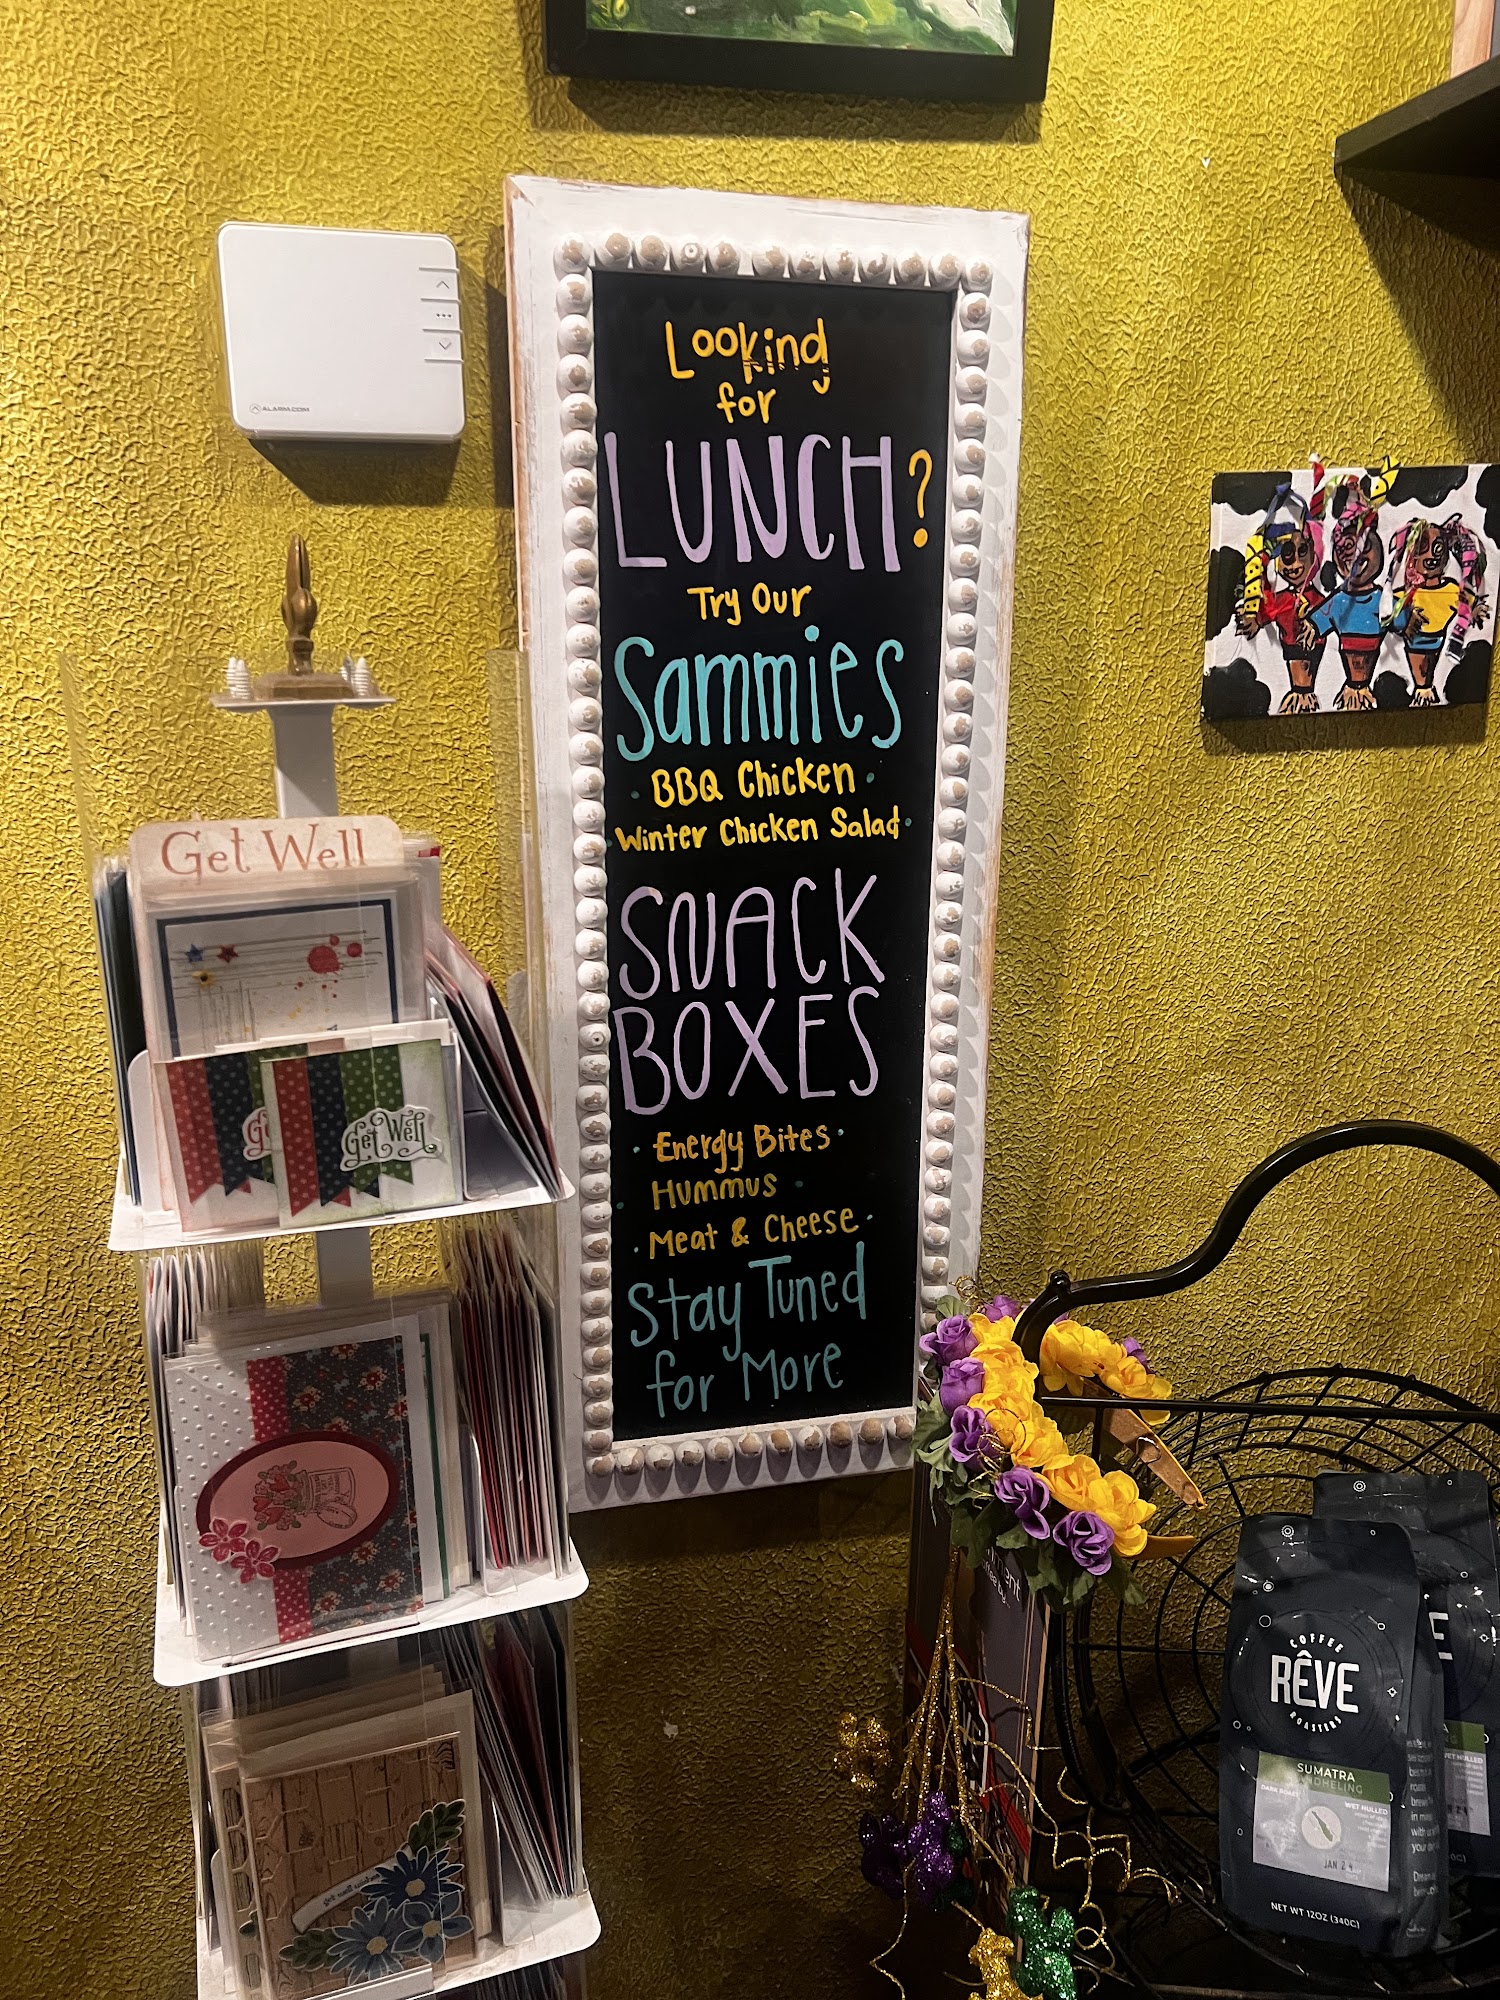 ALARM.COM
Looking
for
LUNCH?
Try Our
Sammies
· BBQ Chicken ·
· Winter Chicken Salad ·
SNACK
BOXES
· Energy Bites ·
· Hummus ·
· Meat & Cheese ·
Stay Tuned
for More
Get Well
Get Well
COFFEE
RÊVE
ROASTERS
SUMATRA
DARK ROAST
WET HULLED
JAN 24
NET WT 12OZ (340G)